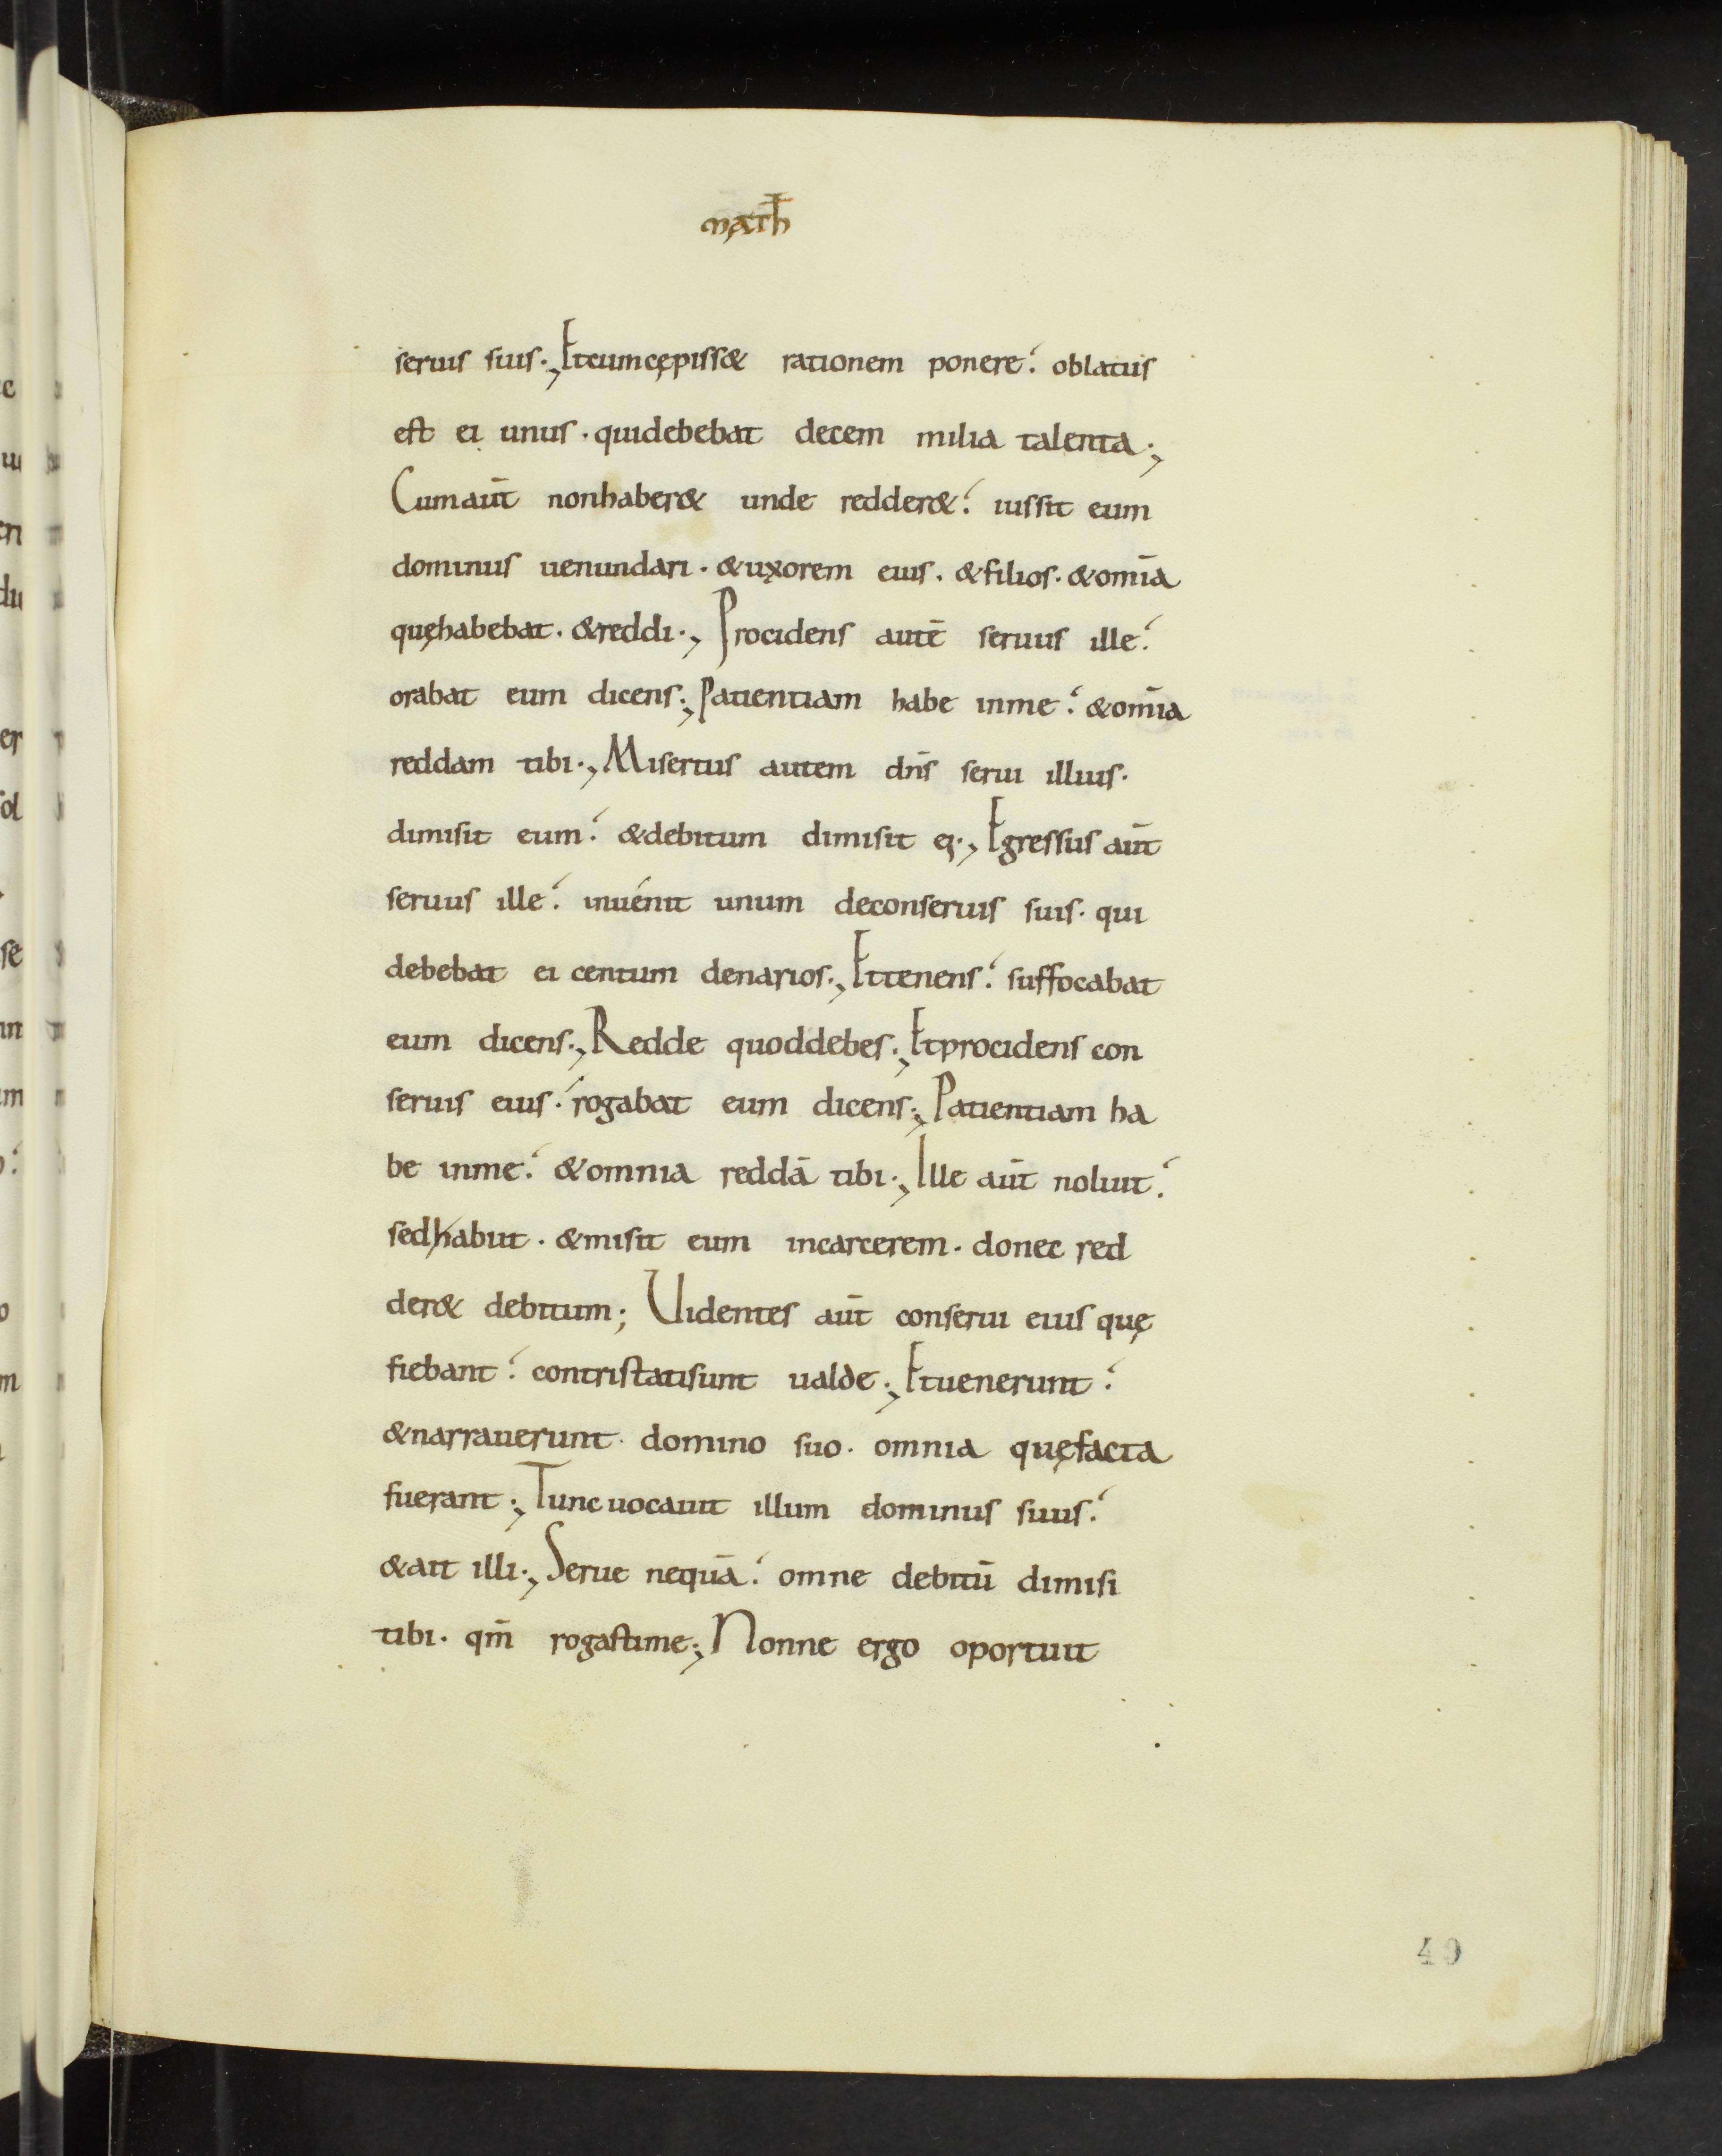 mꝫath̄
seruis suis·, Et cum cępiss& rationem ponere? oblatus
est ei unus · quidebebat decem milia talenta·,
Cum aut̄ non haber& unde redder&? iussit eum
dominus uenundari · &uxorem eius · &filios · &om̄ia
quęhabebat · &reddi·, Procidens autē seruus ille?
orabat eum dicens·, Patientiam habe inme? &om̄ia
reddam tibi·, Misertus autem dn̄s serui illius·
dimisit eum? &debitum dimisit ei·, Egressus aut̄
seruus ille? inuénit unum deconseruis suis · qui
debebat ei centum denarios·, Ettenens? suffocabat
eum dicens·, Redde quoddebes·, Etprocidens con
seruis eius? rogabat eum dicens·, Patientiam ha
be inme? &omnia reddā tibi·, Ille aut̄ noluit?
sedhabiit · &misit eum incarcerem · donec red
der& debitum; Uidentes aut̄ conserui eius quę
fiebant? contristatisunt ualde·, Etuenerunt?
&narrauerunt · domino suo · omnia quęfacta
fuerant·, Tunc uocauit illum dominus suus?
&ait illi·, Serue nequā? omne debitū dimisi
tibi · qm̄ rogastime·, Nonne ergo oportuit
49